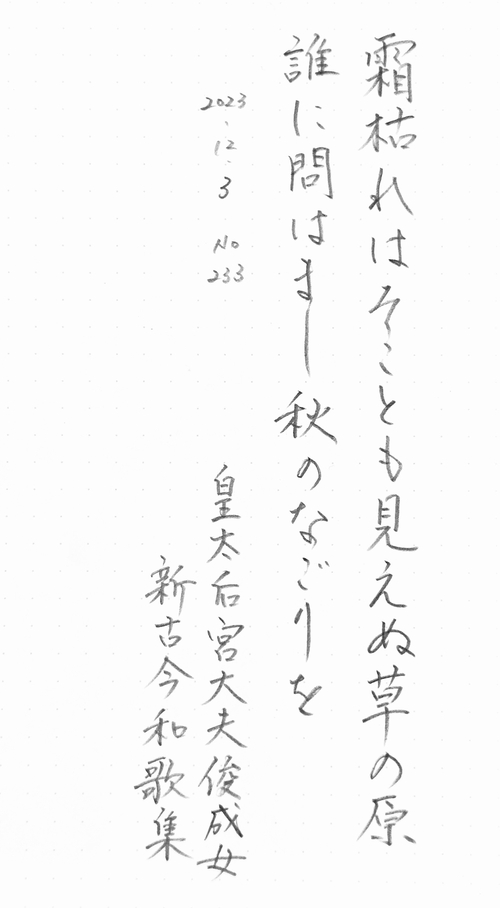 霜枯れはそことも見えぬ草の原
誰に問はまし秋のなごりを
皇太后宮大夫俊成女
新古今和歌集
2023.12.3 No 233